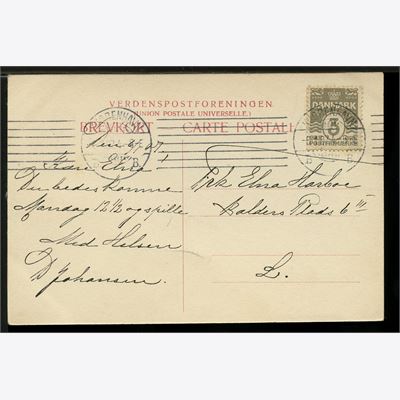 VERDENSPOSTFORENINGEN.
(UNION POSTALE UNIVERSELLE.)
BREVKORT CARTE POSTALE
KJØBENHAVN
B.
DANMARK
3
POSTFRIMÆRKE
Kære Elna!
Du bedes komme
Mandag 12½ og spille
Med Hilsen
D Johansen.
Frk Elna Harboe
Balders Plads 6
L.